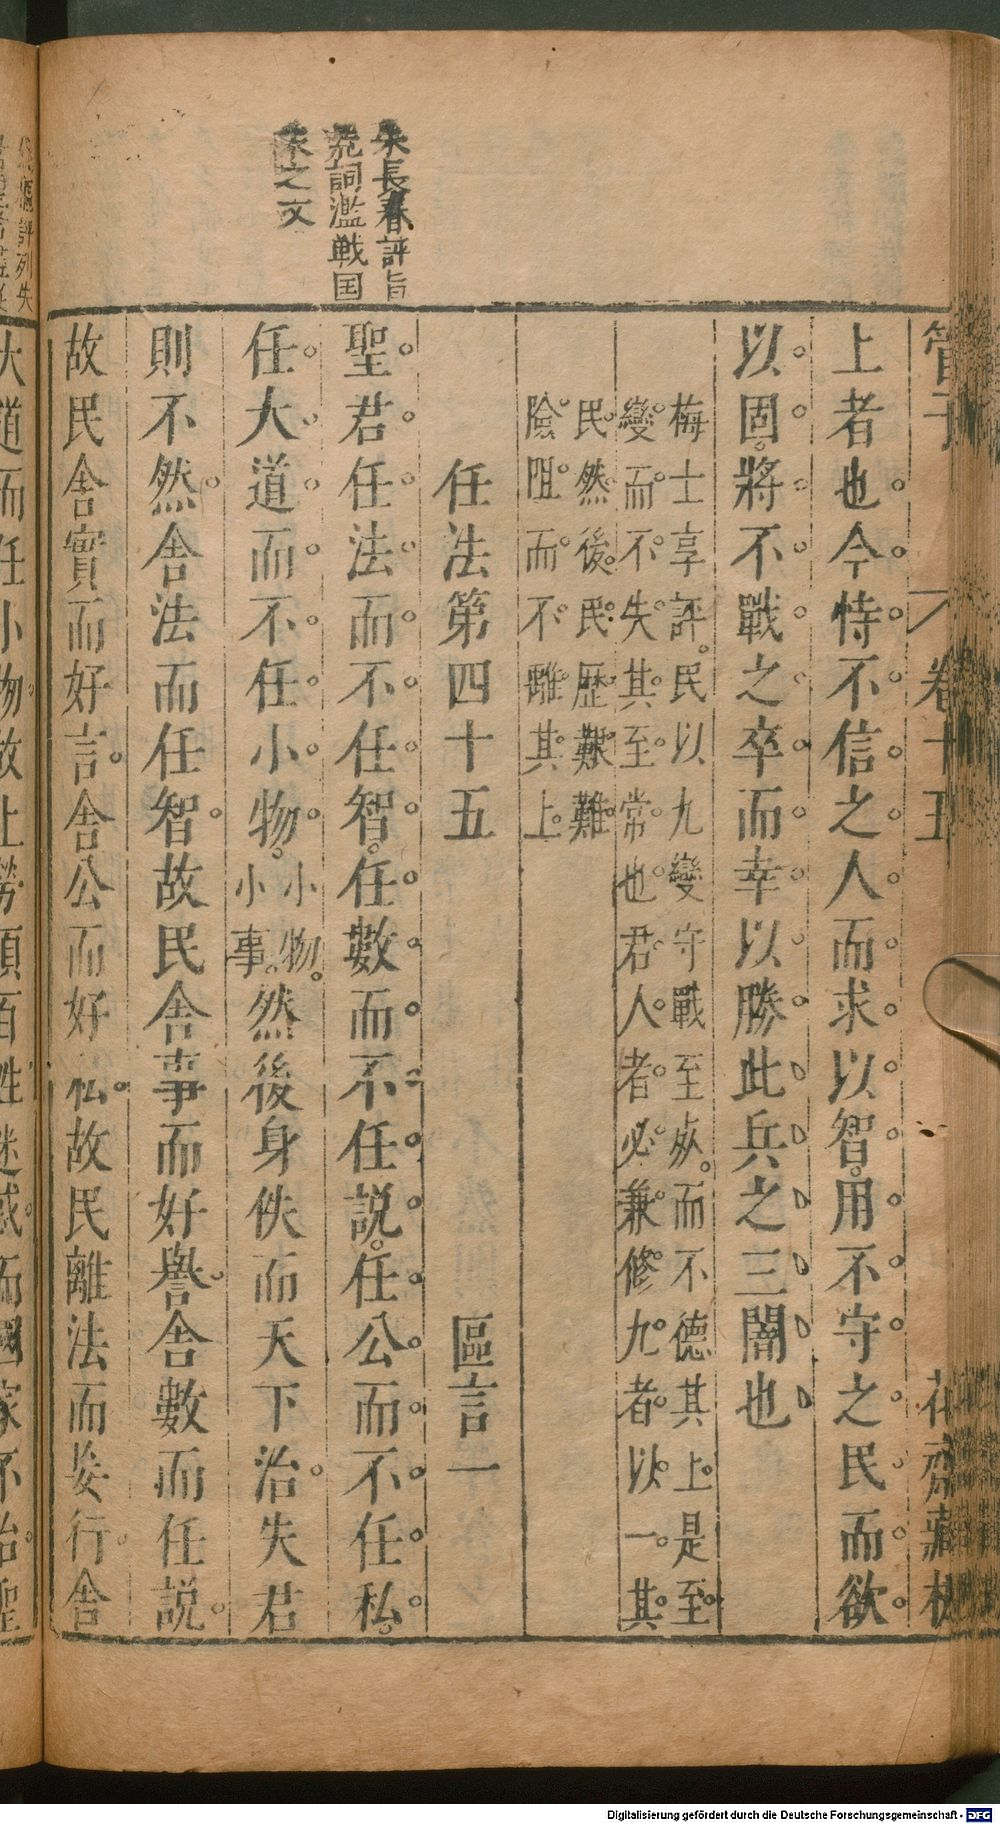 管子 卷十五 花齋藏板
上者也今恃不信之人而求以智用不守之民而欲
以固將不戰之卒而幸以勝此兵之三闇也
梅士享評民以九變守戰至死而不德其上是至
變而不失其至常也君人者必兼修九者以一其
民然後民歷艱難
險阻而不離其上
任法第四十五 區言一
聖君任法而不任智任數而不任說任公而不任私
任大道而不任小物小物小事然後身佚而天下治失君
則不然舍法而任智故民舍事而好譽舍數而任說
故民舍實而好言舍公而好私故民離法而妄行舍
朱長春評旨
詞濫戰国
之文
評列失
大道而任小物故上勞煩百姓迷惑而國家不治聖
Digitalisierung gefördert durch die Deutsche Forschungsgemeinschaft - DFG